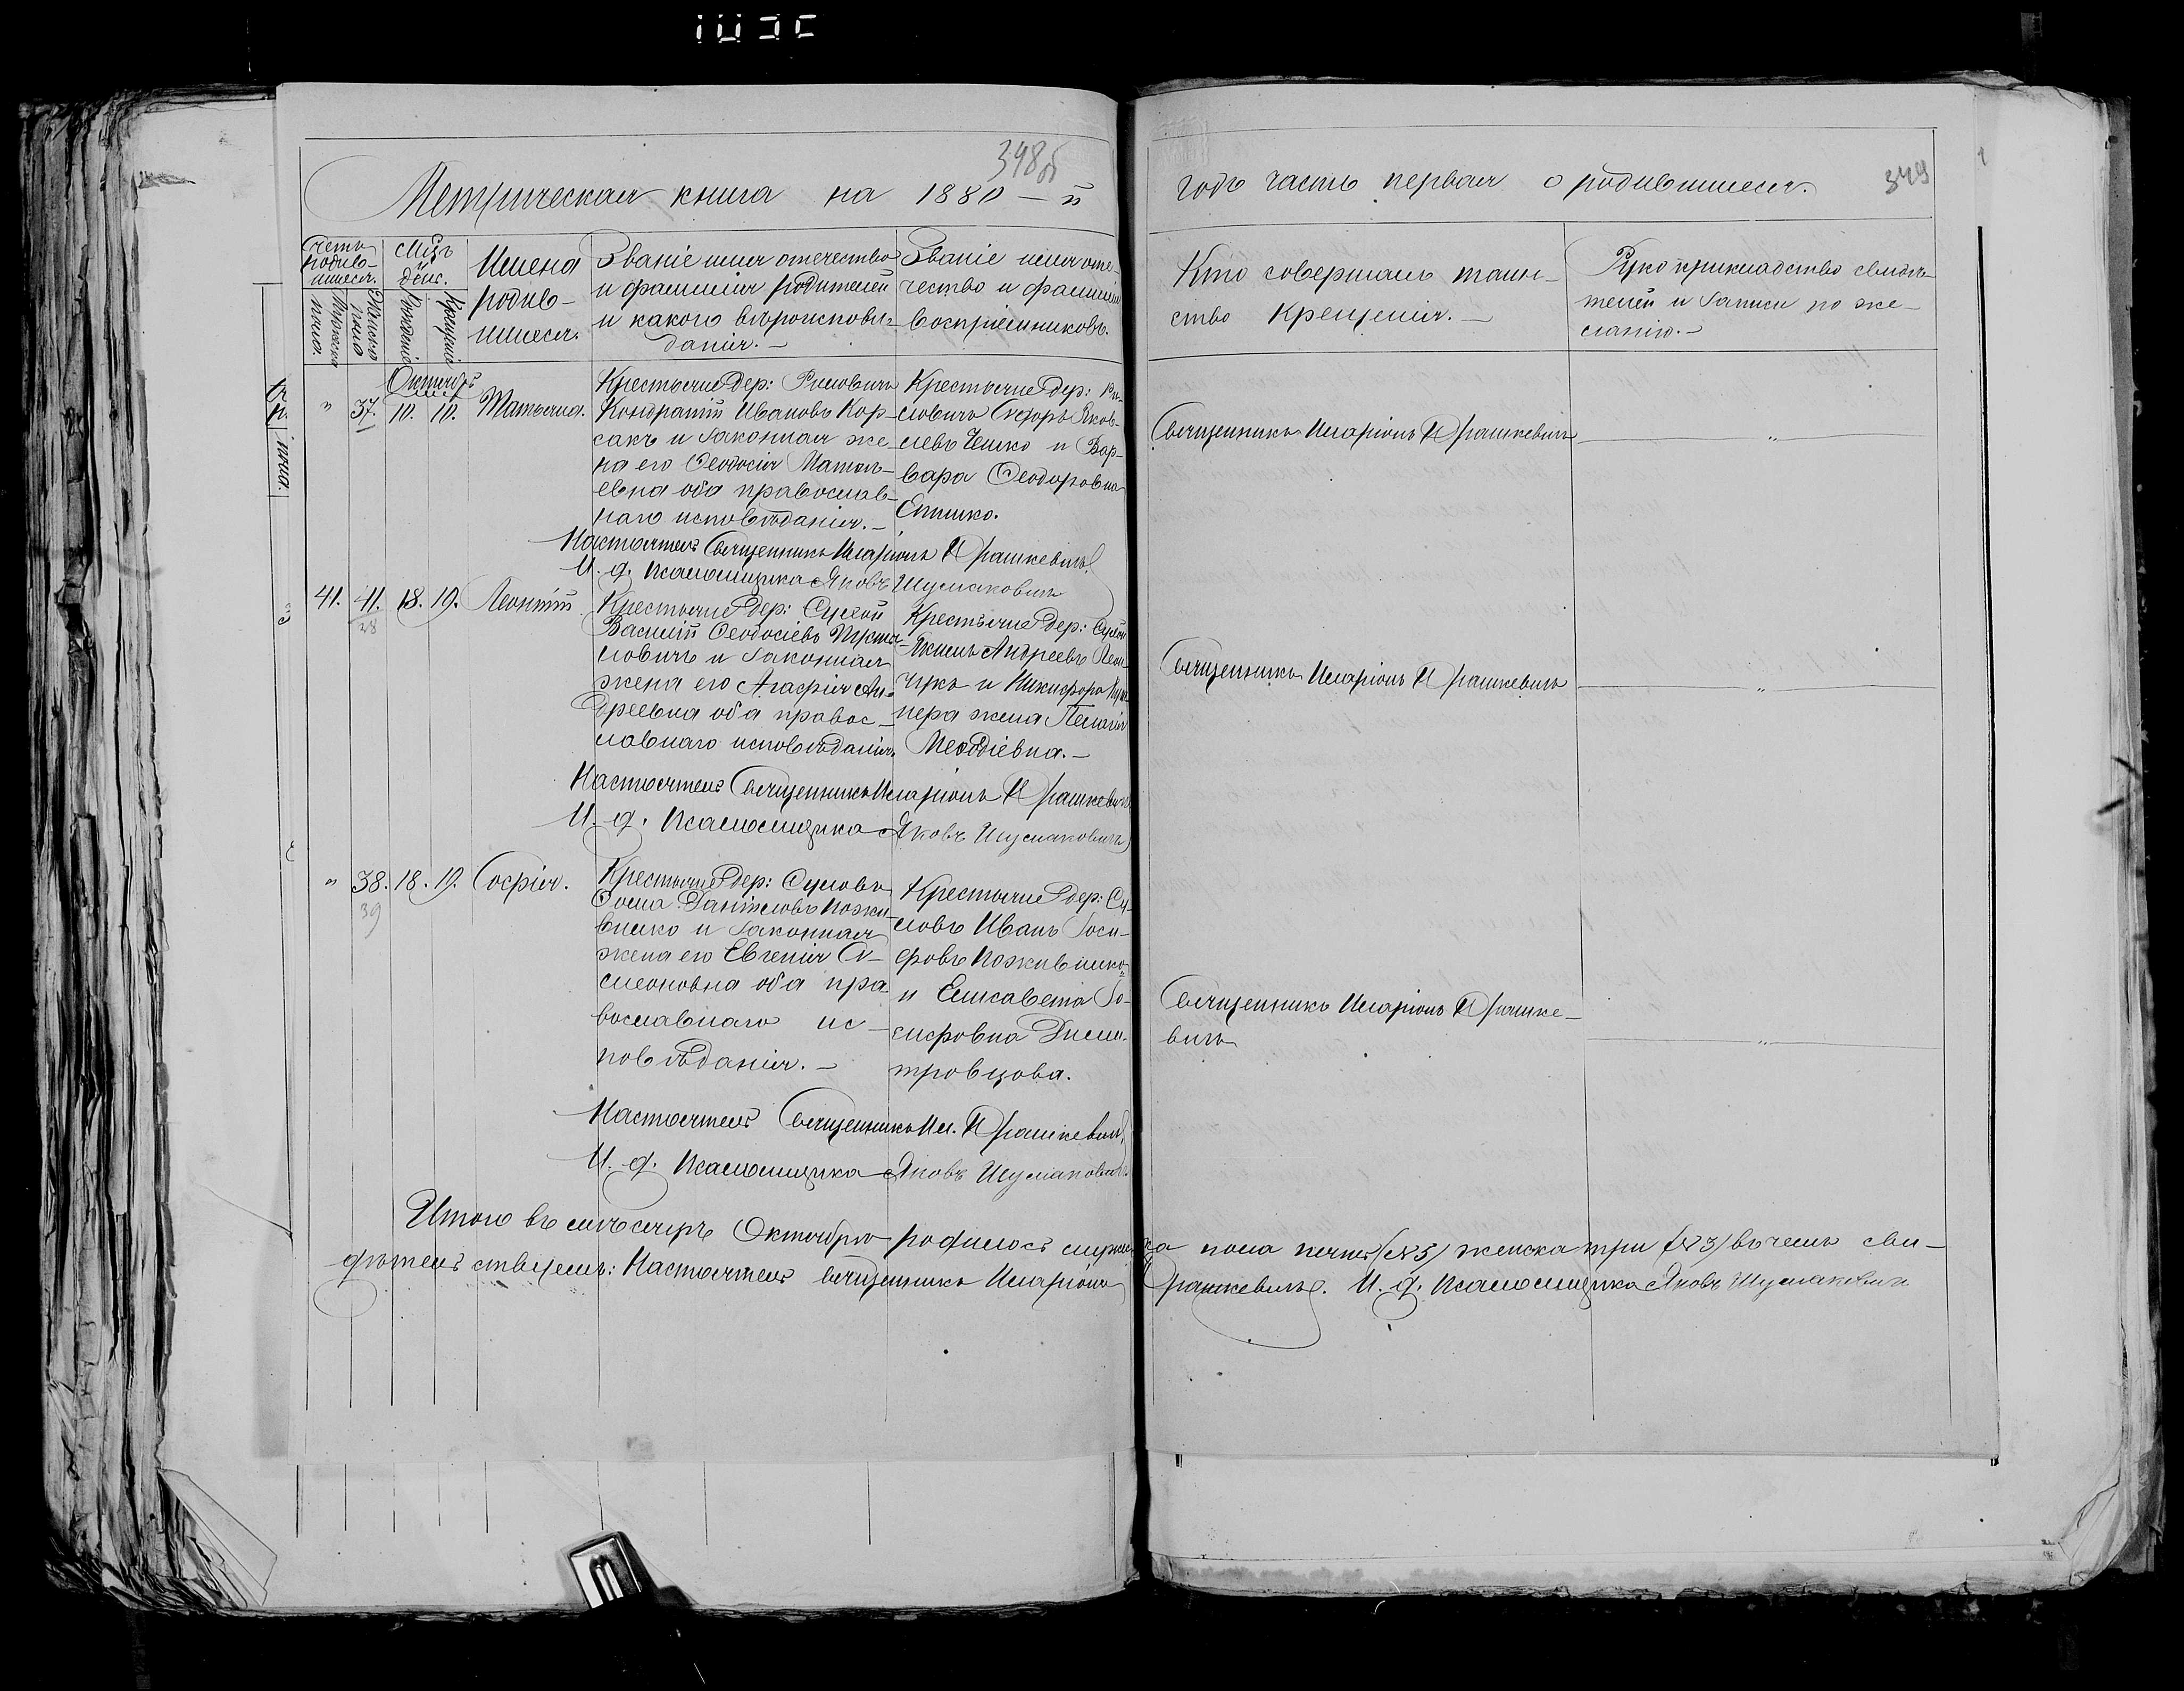 348об
Метрическая книга на 1880 – й
годъ часть первая о родившихся.
349
Счетъ родив-
шихся.
Мужска пола.
Женска пола
Мѣсъ
и день.
Рожденіе
Крещеніе
Имена
родив-
шихся.
Званіе имя отечество
и фамилія родителей
и какого вѣроиспове-
данія. –
Званіе имя оте-
чество и фамилія
воспріемниковъ.
Кто совершалъ таин-
ство Крещенія. –
Рукоприкладство свидѣ-
телей и записи по же-
ланію. –
Октябрь
" 37. 10. 10. Татьяна.
Крестьяне дер:
Кондратій Ивановъ Кор-
сакъ и законная же-
на его Ѳеодосія
евна оба православ-
наго исповѣданія. –
Крестьяне дер:
Ѳедоръ Яков-
левъ и Вар-
вара Ѳеодоровна
Священникъ Иларіонъ Прашкевичъ "
Настоятель Священникъ Иларіонъ Прашкевичъ
И. д. Псаломщика Яковъ Шумаковичъ
41. 41. 18. 19. Леонтій
28
Крестьяне дер:
Василій Ѳеодосіевъ
ловичъ и законная
жена его Агафія Ан-
дреевна оба правос-
лавнаго исповѣданія.
Крестьяне дер:
Андреевъ
чукъ и Никифора
жена Пелагія
Меѳодіевна. –
Священникъ Иларіонъ Прашкевичъ "
Настоятель Священникъ Иларіонъ Прашкевичъ
И. д. Псаломщика Яковъ Шумаковичъ
" 38. 18. 19. Софія.
39
Крестьяне дер: Суловъ
Ѳома Даніиловъ Пожи-
вилко и законная
жена его Евгенія Си-
меоновна оба пра-
вославнаго ис-
повѣданія. –
Крестьяне дер: Су-
ловъ Иванъ Іоси-
фовъ Поживилко
и Елисавета Іо-
сифовна Дими-
тровцова.
Священникъ Иларіонъ Прашке-
вичъ "
Настоятель Священникъ Ил. Прашкевичъ
И. д. Псаломщика Яковъ Шумаковичъ
Итого въ мѣсяцѣ Октябрѣ родилось мужска пола пять (№ 5) женска три (№ 3) въ чемъ сви-
дѣтельствуемъ: Настоятель священникъ Иларіонъ Прашкевичъ. И. д. Псаломщика Яковъ Шумаковичъ